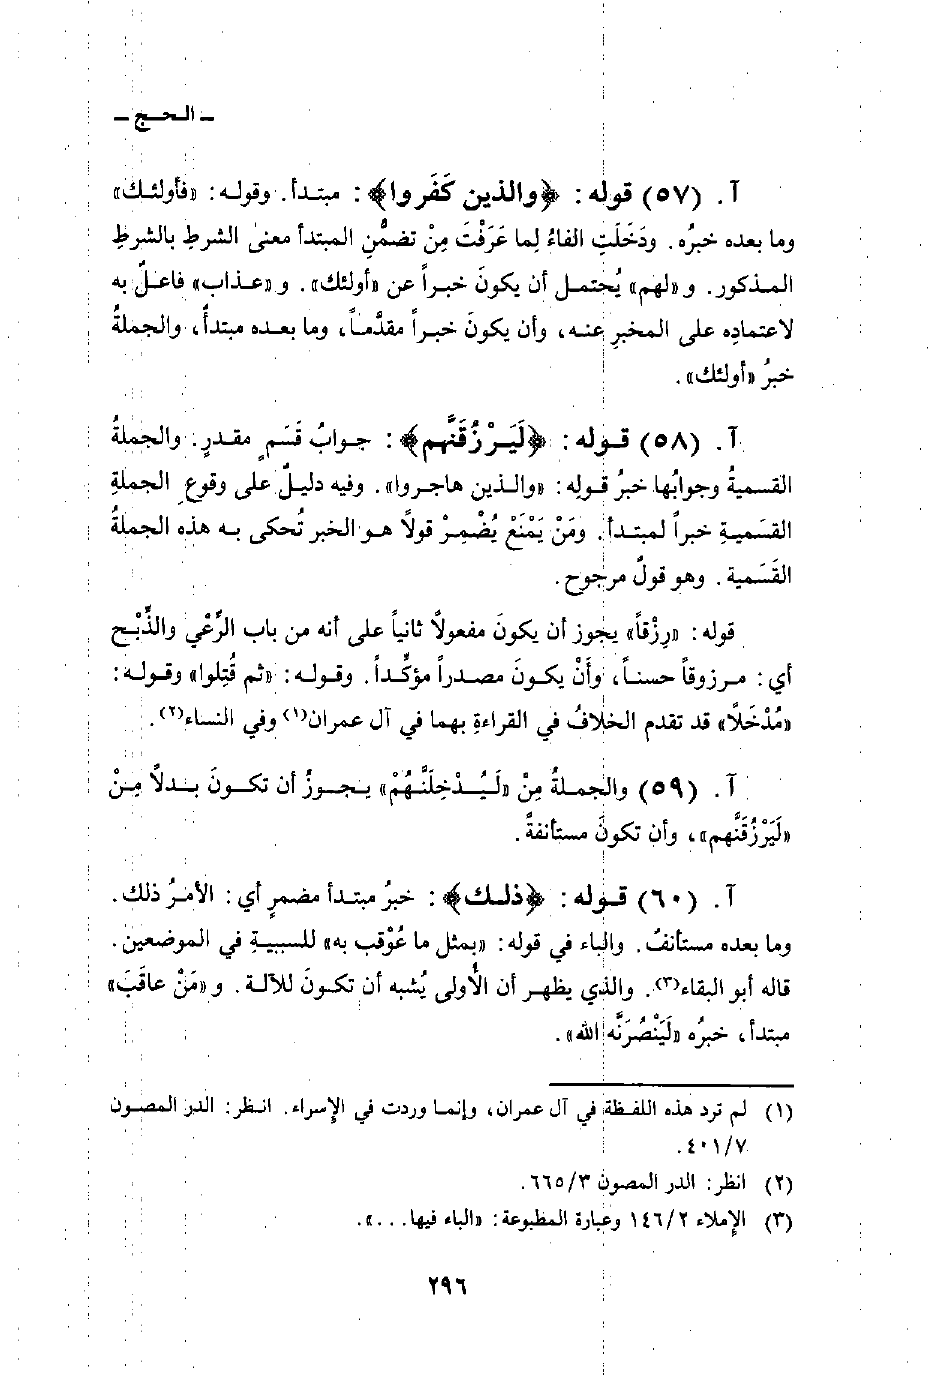 ـ الحـج ـ
آ. (٥٧) قوله: ﴿والذين كَفَروا﴾: مبتدأ. وقوله: «فأولئك»
وما بعده خبرُه. ودَخَلَتِ الفاءُ لِما عَرَفْتَ مِنْ تضمُّنِ المبتدأ معنىٰ الشرطِ بالشرطِ
المذكور. و «لهم» يُحتمل أن يكونَ خبراً عن «أولئك». و «عذاب» فاعلٌ به
لاعتمادِه على المخبرِ عنه، وأن يكونَ خبراً مقدَّماً، وما بعده مبتدأٌ، والجملةُ
خبرُ «أولئك».
آ. (٥٨) قوله: ﴿لَيَرْزُقَنَّهم﴾: جوابُ قَسَمٍ مقدرٍ. والجملةُ
القسميةُ وجوابُها خبرُ قولِه: «والذين هاجروا». وفيه دليلٌ على وقوعِ الجملةِ
القسَميةِ خبراً لمبتدأ. ومَنْ يَمْنَعْ يُضْمِرْ قولاً هو الخبر تُحكى به هذه الجملةُ
القَسَمية. وهو قولٌ مرجوح.
قوله: «رِزْقاً» يجوز أن يكونَ مفعولاً ثانياً على أنه من باب الرِّعْي والذِّبْح
أي: مرزوقاً حسناً، وأَنْ يكونَ مصدراً مؤكِّداً. وقوله: «ثم قُتِلوا» وقوله:
«مُدْخَلاً» قد تقدم الخلافُ في القراءةِ بهما في آل عمران(١) وفي النساء(٢).
آ. (٥٩) والجملةُ مِنْ «لَيُدْخِلَنَّهُمْ» يجوزُ أن تكونَ بدلاً مِنْ
«لَيَرْزُقَنَّهم»، وأن تكونَ مستأنفةً.
آ. (٦٠) قوله: ﴿ذلك﴾: خبرُ مبتدأ مضمرٍ أي: الأمرُ ذلك.
وما بعده مستأنفٌ. والباء في قوله: «بمثل ما عُوْقب به» للسببيةِ في الموضعين.
قاله أبو البقاء(٣). والذي يظهر أن الأُولى يُشبه أن تكونَ للآلة. و «مَنْ عاقَبَ»
مبتدأ، خبرُه «لَيَنْصُرَنَّه الله».
(١) لم ترد هذه اللفظة في آل عمران، وإنما وردت في الإسراء. انظر: الدر المصون
٤٠١/٧.
(٢) انظر: الدر المصون ٦٦٥/٣.
(٣) الإملاء ١٤٦/٢ وعبارة المطبوعة: «الباء فيها...».
٢٩٦